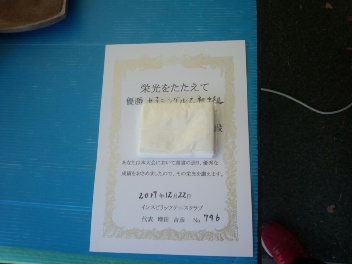 栄光をたたえて
優勝
殿
あなたは本大会において頭書の通り、優秀な
成績をおさめましたので、その栄光を讃えます。
2019年12月22日
インスピリッツテニスクラブ
代表 増田 吉彦 No 746